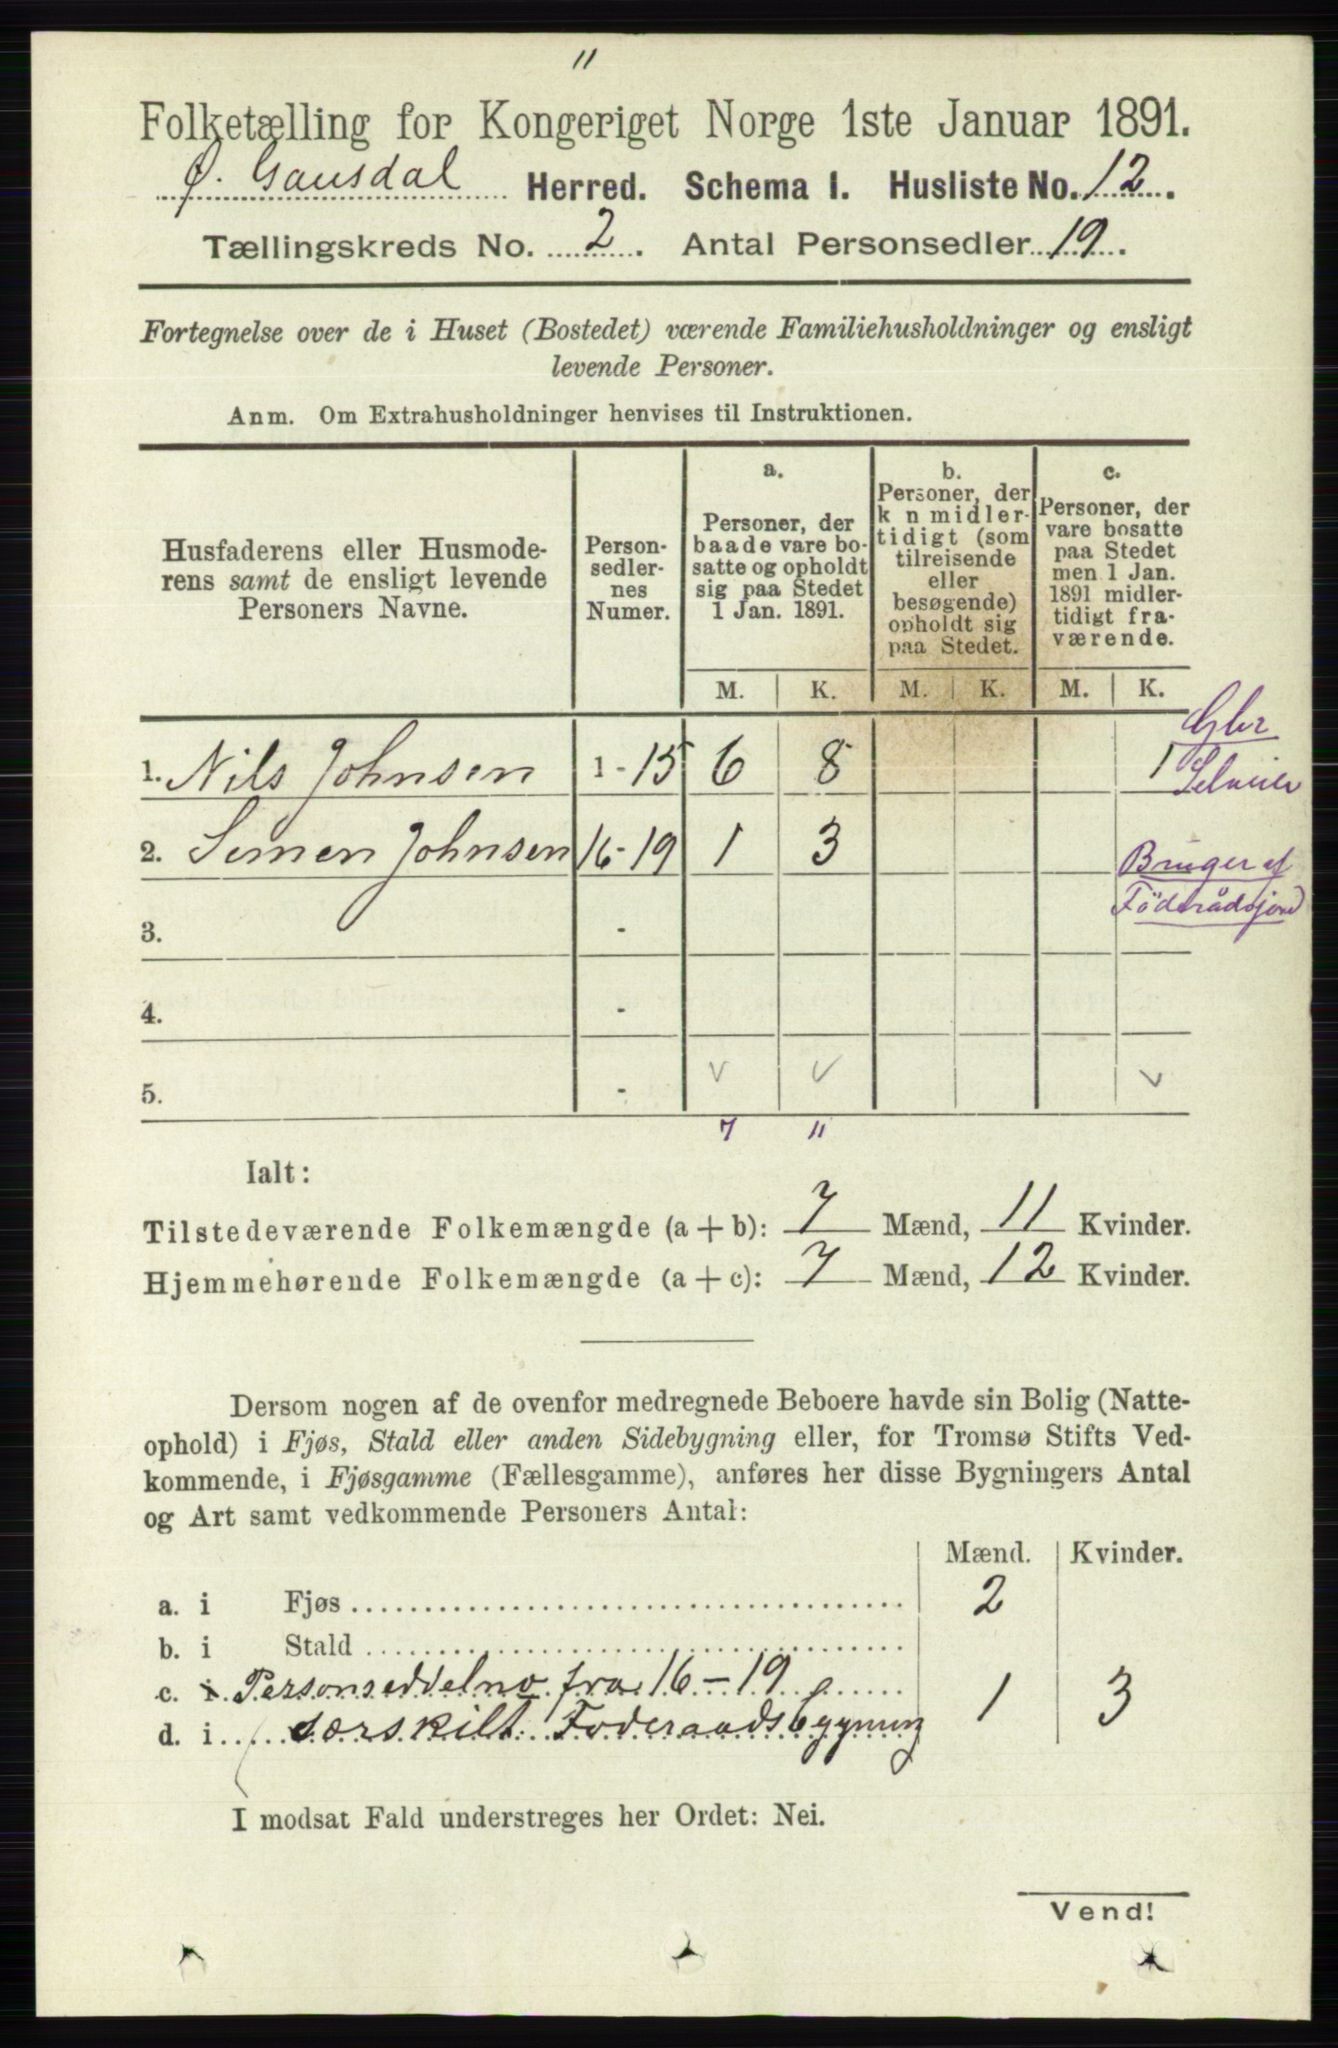 11
Folketælling for Kongeriget Norge 1ste Januar 1891.
Ø. Gausdal Herred. Schema I. Husliste No. 12.
Tællingskreds No. 2. Antal Personsedler 19.
Fortegnelse over de i Huset (Bostedet) værende Familiehusholdninger og ensligt
levende Personer.
Anm. Om Extrahusholdninger henvises til Instruktionen.
Husfaderens eller Husmode-
rens samt de ensligt levende
Personers Navne.
Person-
sedler-
nes
Numer.
a.
Personer, der
baade vare bo-
satte og opholdt
sig paa Stedet
1 Jan. 1891.
b.
Personer, der
k n midler-
tidigt (som
tilreisende
eller
besøgende)
opholdt sig
paa Stedet.
c.
Personer, der
vare bosatte
paa Stedet
men 1 Jan.
1891 midler-
tidigt fra-
værende.
M. K. M. K. M. K.
Gbr
Selveier
1. Nils Johnsen 1 - 15 6 8 1
2. Simen Johnsen 16 - 19 1 3
Bruger af
Föderådsjord
3. -
4. -
5. - v v v
7 11
Ialt:
Tilstedeværende Folkemængde (a + b): 7 Mænd, 11 Kvinder.
Hjemmehørende Folkemængde (a + c): 7 Mænd, 12 Kvinder.
Dersom nogen af de ovenfor medregnede Beboere havde sin Bolig (Natte-
ophold) i Fjøs, Stald eller anden Sidebygning eller, for Tromsø Stifts Ved-
kommende, i Fjøsgamme (Fællesgamme), anføres her disse Bygningers Antal
og Art samt vedkommende Personers Antal:
Mænd. Kvinder.
a. i Fjøs 2
b. i Stald
c. i Personseddelno fra 16 - 19
d. i særskilt Foderaadsbygning 1 3
I modsat Fald understreges her Ordet: Nei.
Vend!